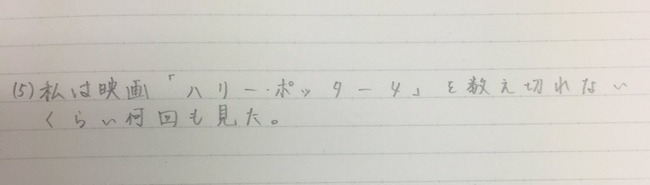 (5)私は映画「ハリー・ポッター4」を数え切れない
くらい何回も見た。